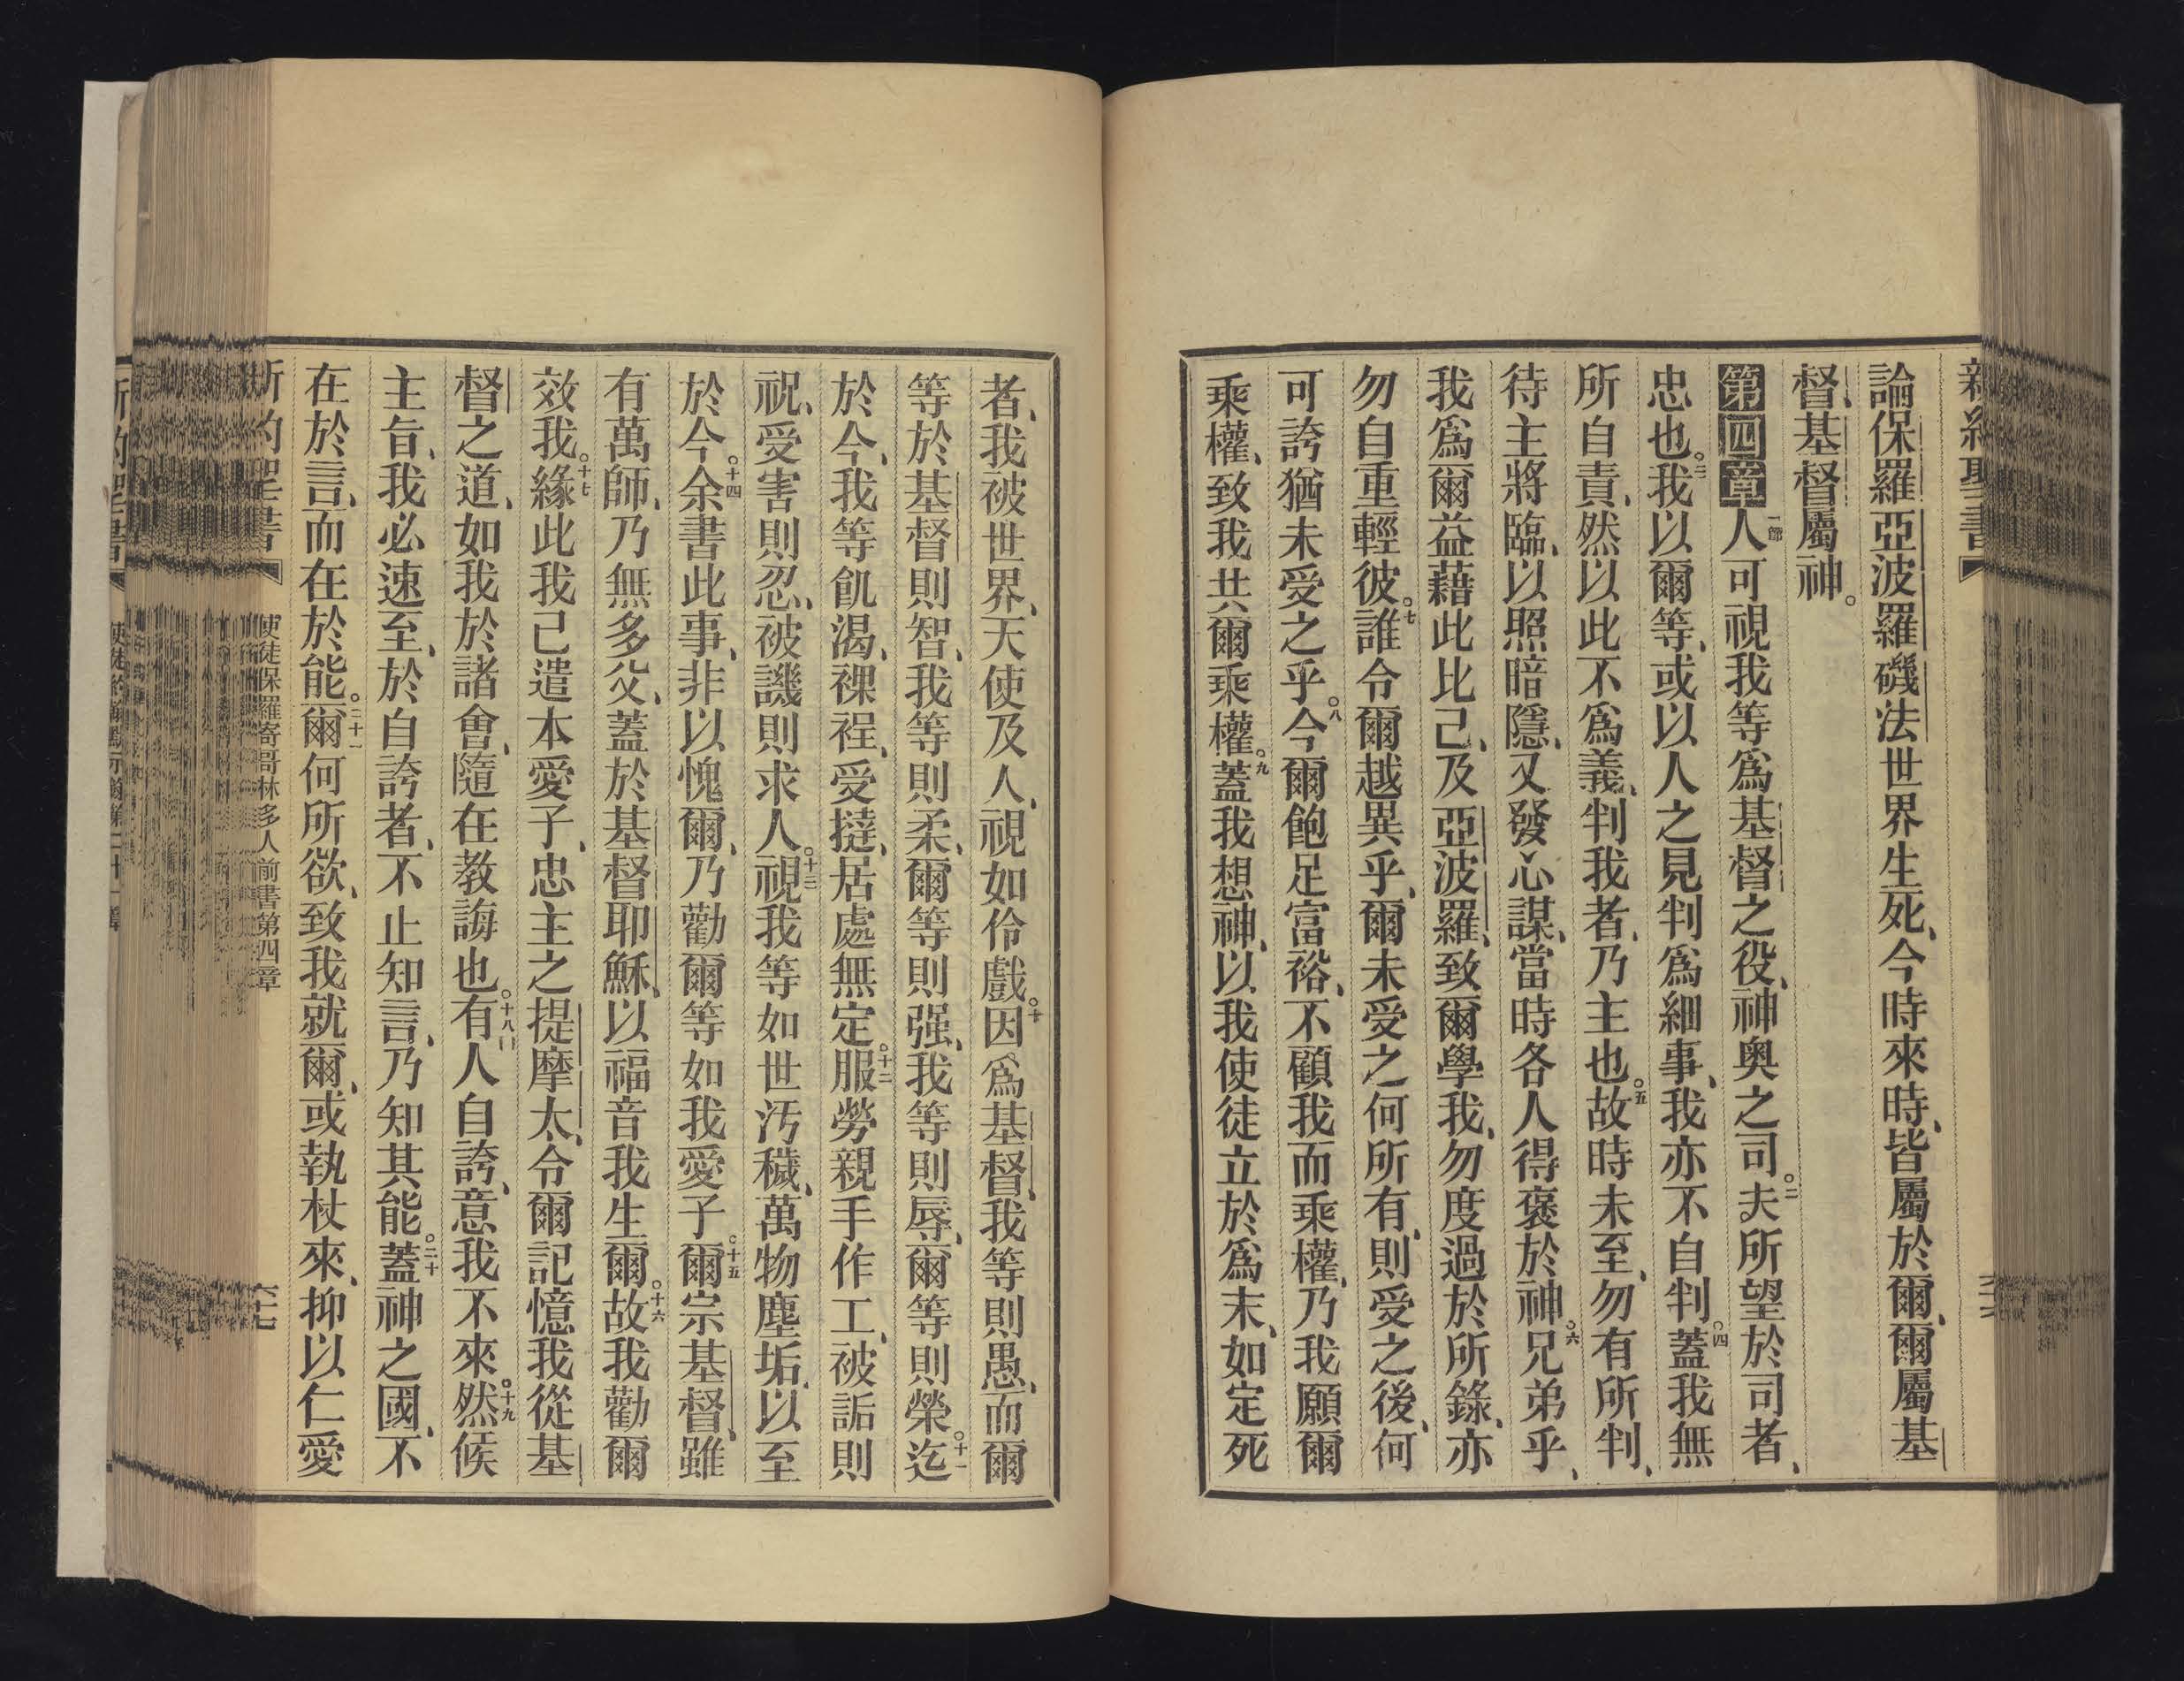 論保羅亞波羅磯法世界生死、今時來時、皆屬於爾、爾屬基
督、基督屬神。
第四章一節人可視我等爲基督之役、神奧之司。二夫所望於司者、
忠也。三我以爾等、或以人之見判爲細事、我亦不自判。四蓋我無
所自責、然以此不爲義、判我者、乃主也。五故時未至、勿有所判、
待主將臨、以照暗隱、又發心謀、當時各人得褒於神。六兄弟乎、
我爲爾益藉此比己、及亞波羅、致爾學我、勿度過於所錄、亦
勿自重輕彼。七誰令爾越異乎、爾未受之何所有、則受之後、何
可誇猶未受之乎。八今爾飽足富裕、不顧我而乘權、乃我願爾
乘權、致我共爾乘權。九蓋我想神、以我使徒立於爲末、如定死
者、我被世界、天使及人、視如伶戲。十因爲基督、我等則愚、而爾
等於基督則智、我等則柔、爾等則强、我等則辱、爾等則榮。十一迄
於今、我等飢渴、裸裎、受撻、居處無定。十二服勞親手作工、被詬則
祝、受害則忍、被譏則求人。十三視我等如世汚穢、萬物塵垢、以至
於今。十四余書此事、非以愧爾、乃勸爾等如我愛子。十五爾宗基督、雖
有萬師、乃無多父、蓋於基督耶穌、以福音我生爾。十六故我勸爾
效我。十七緣此我已遣本愛子、忠主之提摩太、令爾記憶我從基
督之道、如我於諸會、隨在教誨也。十八有人自誇、意我不來。十九然候
主旨、我必速至、於自誇者、不止知言、乃知其能。二十蓋神之國、不
在於言、而在於能。二十一爾何所欲、致我就爾、或執杖來、抑以仁愛
新約聖書 使徒保羅寄哥林多人前書第四章 六十七